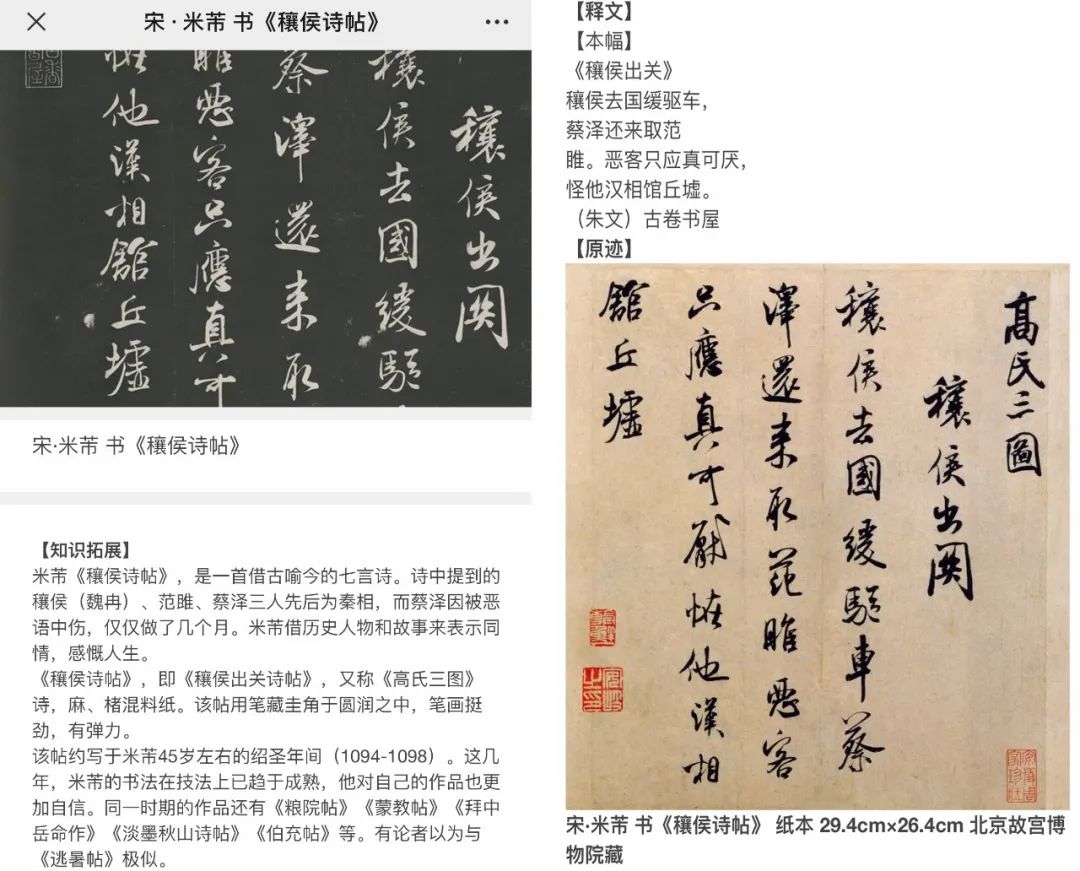 宋·米芾 书《穰侯诗帖》
穰侯出関
穰侯去國緩驅
蔡澤還来取
睢惡客只應真可
恠他漢相館丘墟
宋·米芾 书《穰侯诗帖》
【知识拓展】
米芾《穰侯诗帖》，是一首借古喻今的七言诗。诗中提到的
穰侯（魏冉）、范雎、蔡泽三人先后为秦相，而蔡泽因被恶
语中伤，仅仅做了几个月。米芾借历史人物和故事来表示同
情，感慨人生。
《穰侯诗帖》，即《穰侯出关诗帖》，又称《高氏三图》
诗，麻、楮混料纸。该帖用笔藏圭角于圆润之中，笔画挺
劲，有弹力。
该帖约写于米芾45岁左右的绍圣年间（1094-1098）。这几
年，米芾的书法在技法上已趋于成熟，他对自己的作品也更
加自信。同一时期的作品还有《粮院帖》《蒙教帖》《拜中
岳命作》《淡墨秋山诗帖》《伯充帖》等。有论者以为与
《逃暑帖》极似。
【释文】
【本幅】
《穰侯出关》
穰侯去国缓驱车，
蔡泽还来取范
睢。恶客只应真可厌，
怪他汉相馆丘墟。
（朱文）古卷书屋
【原迹】
高氏三圖
穰侯出関
穰侯去國緩驅車蔡
澤還来取范睢惡客
只應真可厭恠他漢相
館丘墟
宋·米芾 书《穰侯诗帖》 纸本 29.4cm×26.4cm 北京故宫博
物院藏